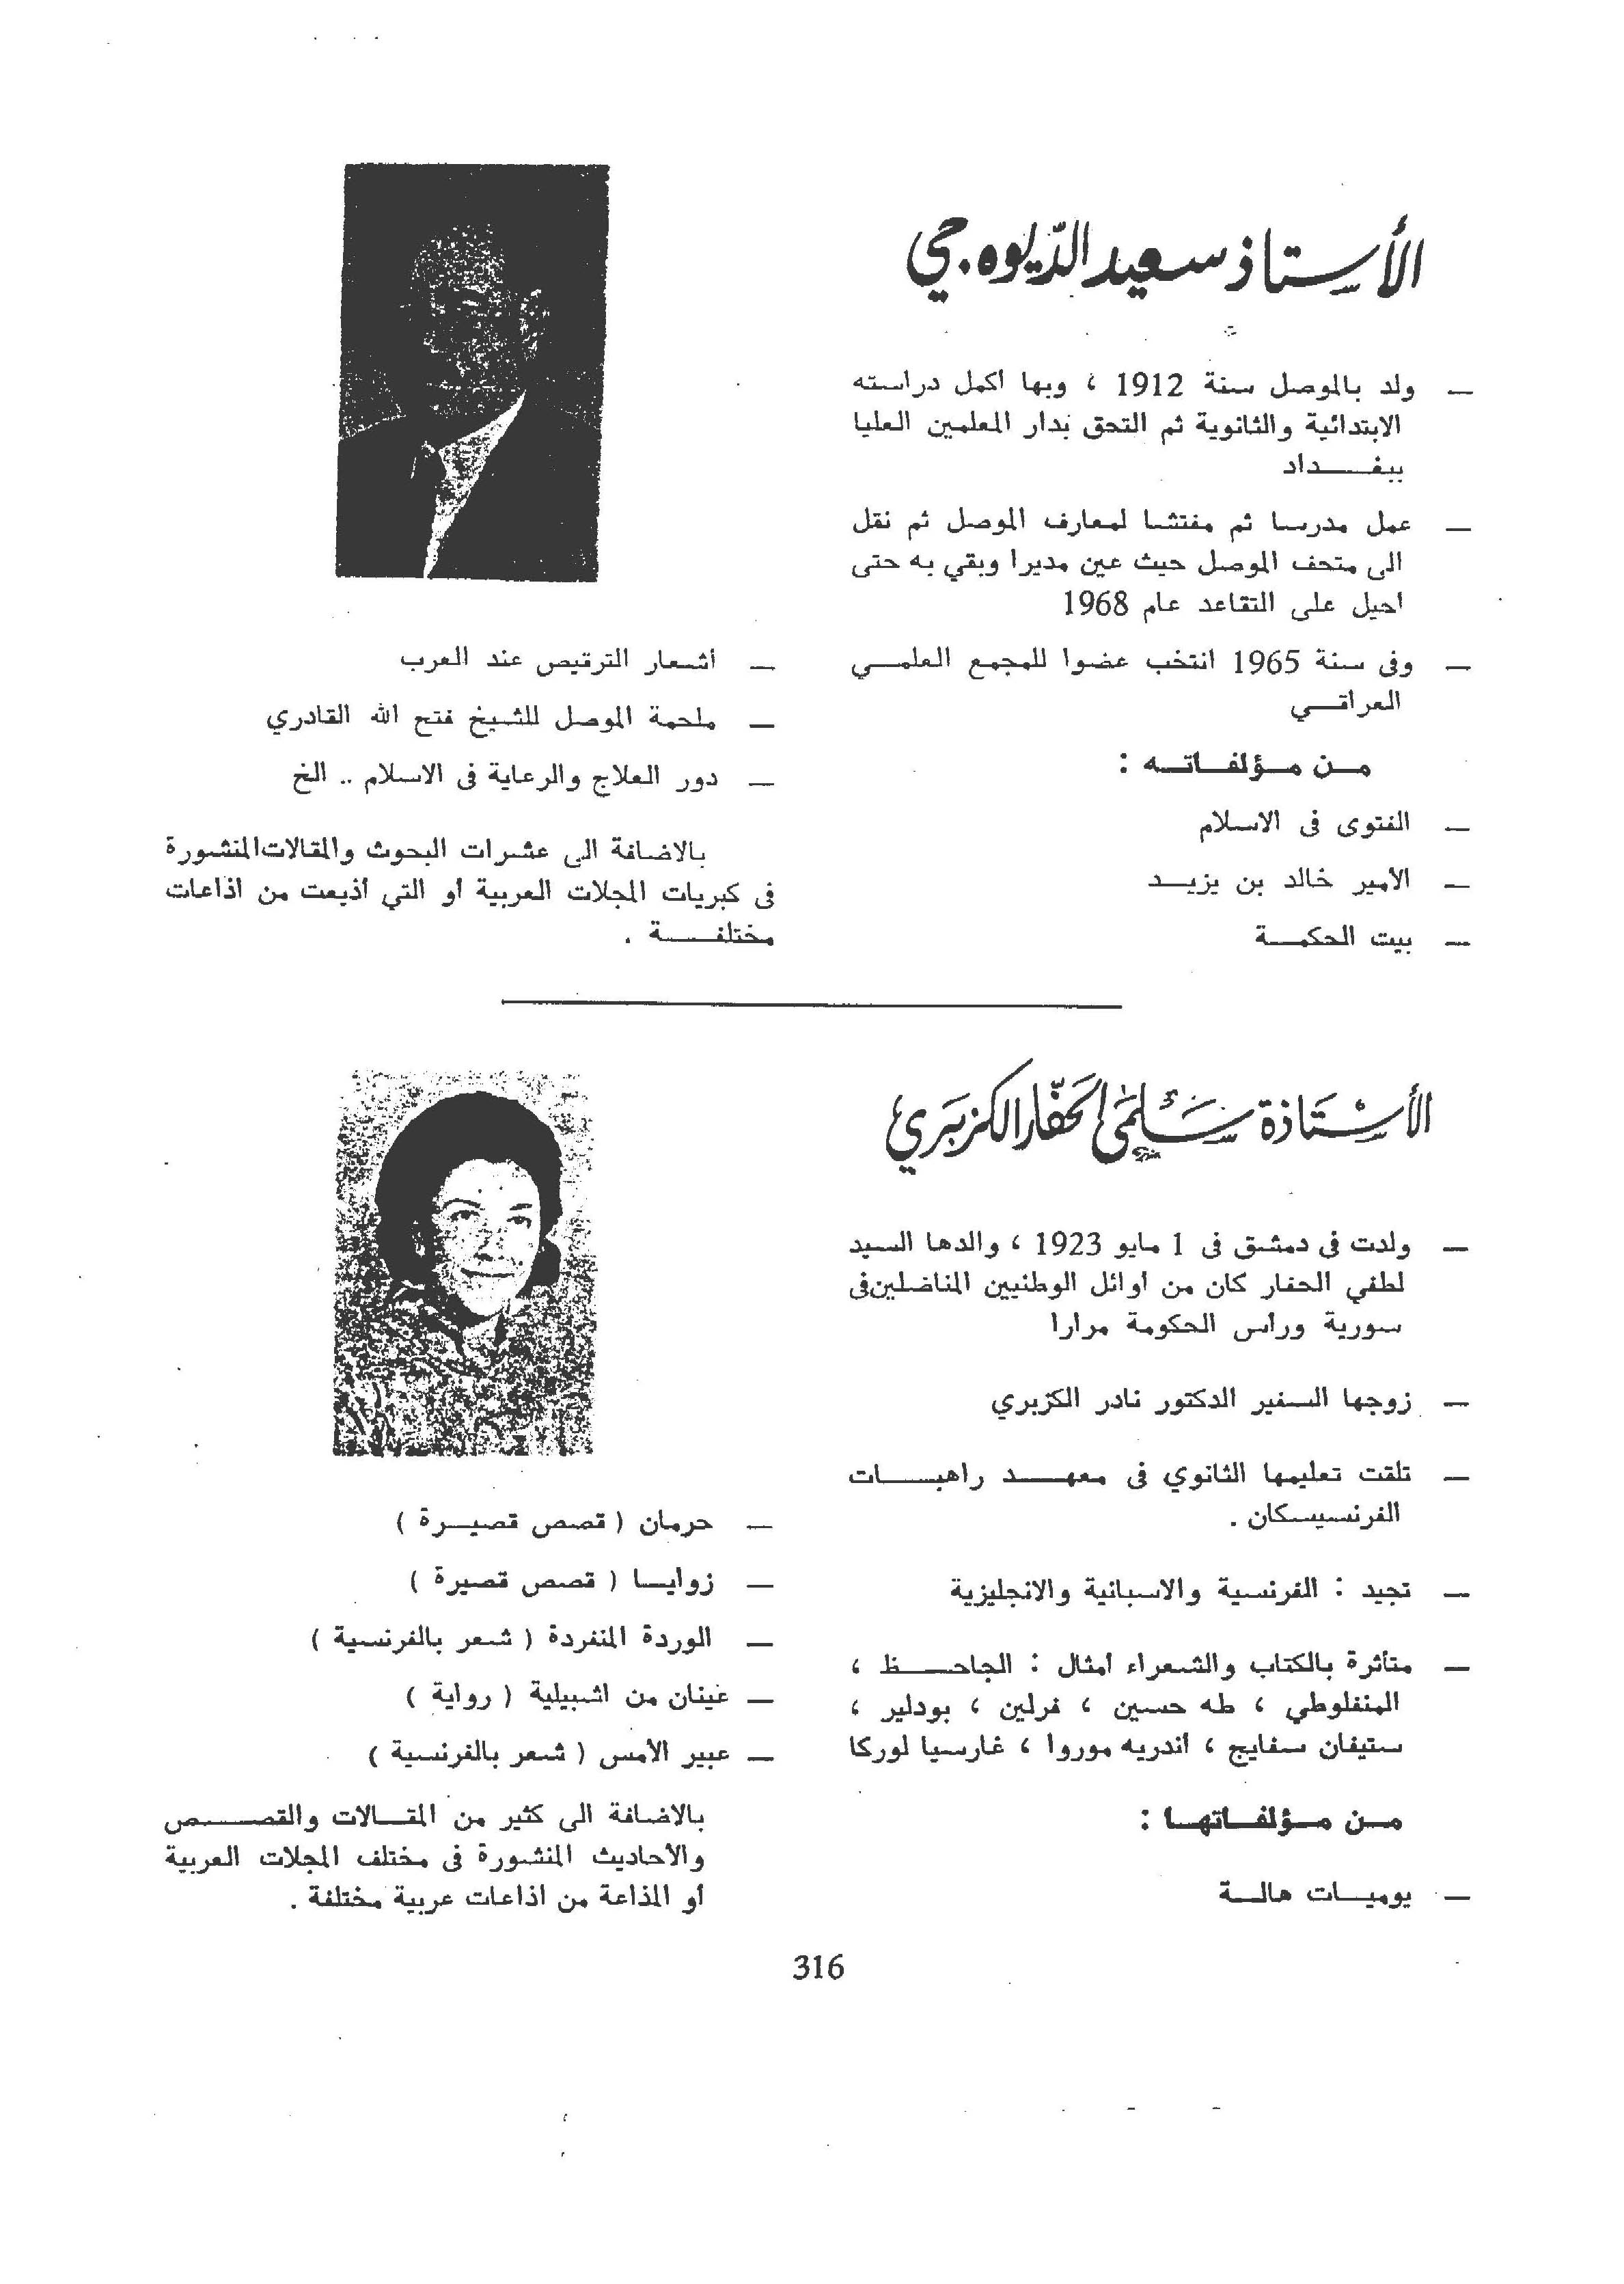 الأستاذ سعيد الديوه جي
— ولد بالموصل سنة 1912 ، وبها اكمل دراسته
الابتدائية والثانوية ثم التحق بدار المعلمين العليا
ببغـــداد
— عمل مدرسا ثم مفتشا لمعارف الموصل ثم نقل
الى متحف الموصل حيث عين مديرا وبقي به حتى
احيل على التقاعد عام 1968
— وفى سنة 1965 انتخب عضوا للمجمع العلمـــي
العراقـــي
مــن مــؤلفــاتــه :
— الفتوى فى الاسلام
— الأمير خالد بن يزيــد
— بيت الحكمــة
— أشعار الترقيص عند العرب
— ملحمة الموصل للشيخ فتح الله القادري
— دور العلاج والرعاية فى الاسلام .. الخ
بالاضافة الى عشرات البحوث والمقالات المنشورة
فى كبريات المجلات العربية أو التي أذيعت من اذاعات
مختلفـــة .
الأستاذة سلمى الحفار الكزبري
— ولدت فى دمشق فى 1 مايو 1923 ، والدها السيد
لطفي الحفار كان من أوائل الوطنيين المناضلين فى
سورية ورأس الحكومة مرارا
— زوجها السفير الدكتور نادر الكزبري
— تلقت تعليمها الثانوي فى معهــد راهبــات
الفرنسيسكان .
— تجيد : الفرنسية والاسبانية والانجليزية
— متأثرة بالكتاب والشعراء امثال : الجاحــظ ،
المنفلوطي ، طه حسين ، فرلين ، بودلير ،
ستيفان سفايج ، اندريه موروا ، غارسيا لوركا
مــن مــؤلفــاتهــا :
— يوميــات هالــة
— حرمان ( قصص قصيــرة )
— زوايــا ( قصص قصيرة )
— الوردة المنفردة ( شعر بالفرنسية )
— عينان من اشبيلية ( رواية )
— عبير الأمس ( شعر بالفرنسية )
بالاضافة الى كثير من المقــالات والقصــص
والأحاديث المنشورة فى مختلف المجلات العربية
أو المذاعة من اذاعات عربية مختلفة .
316